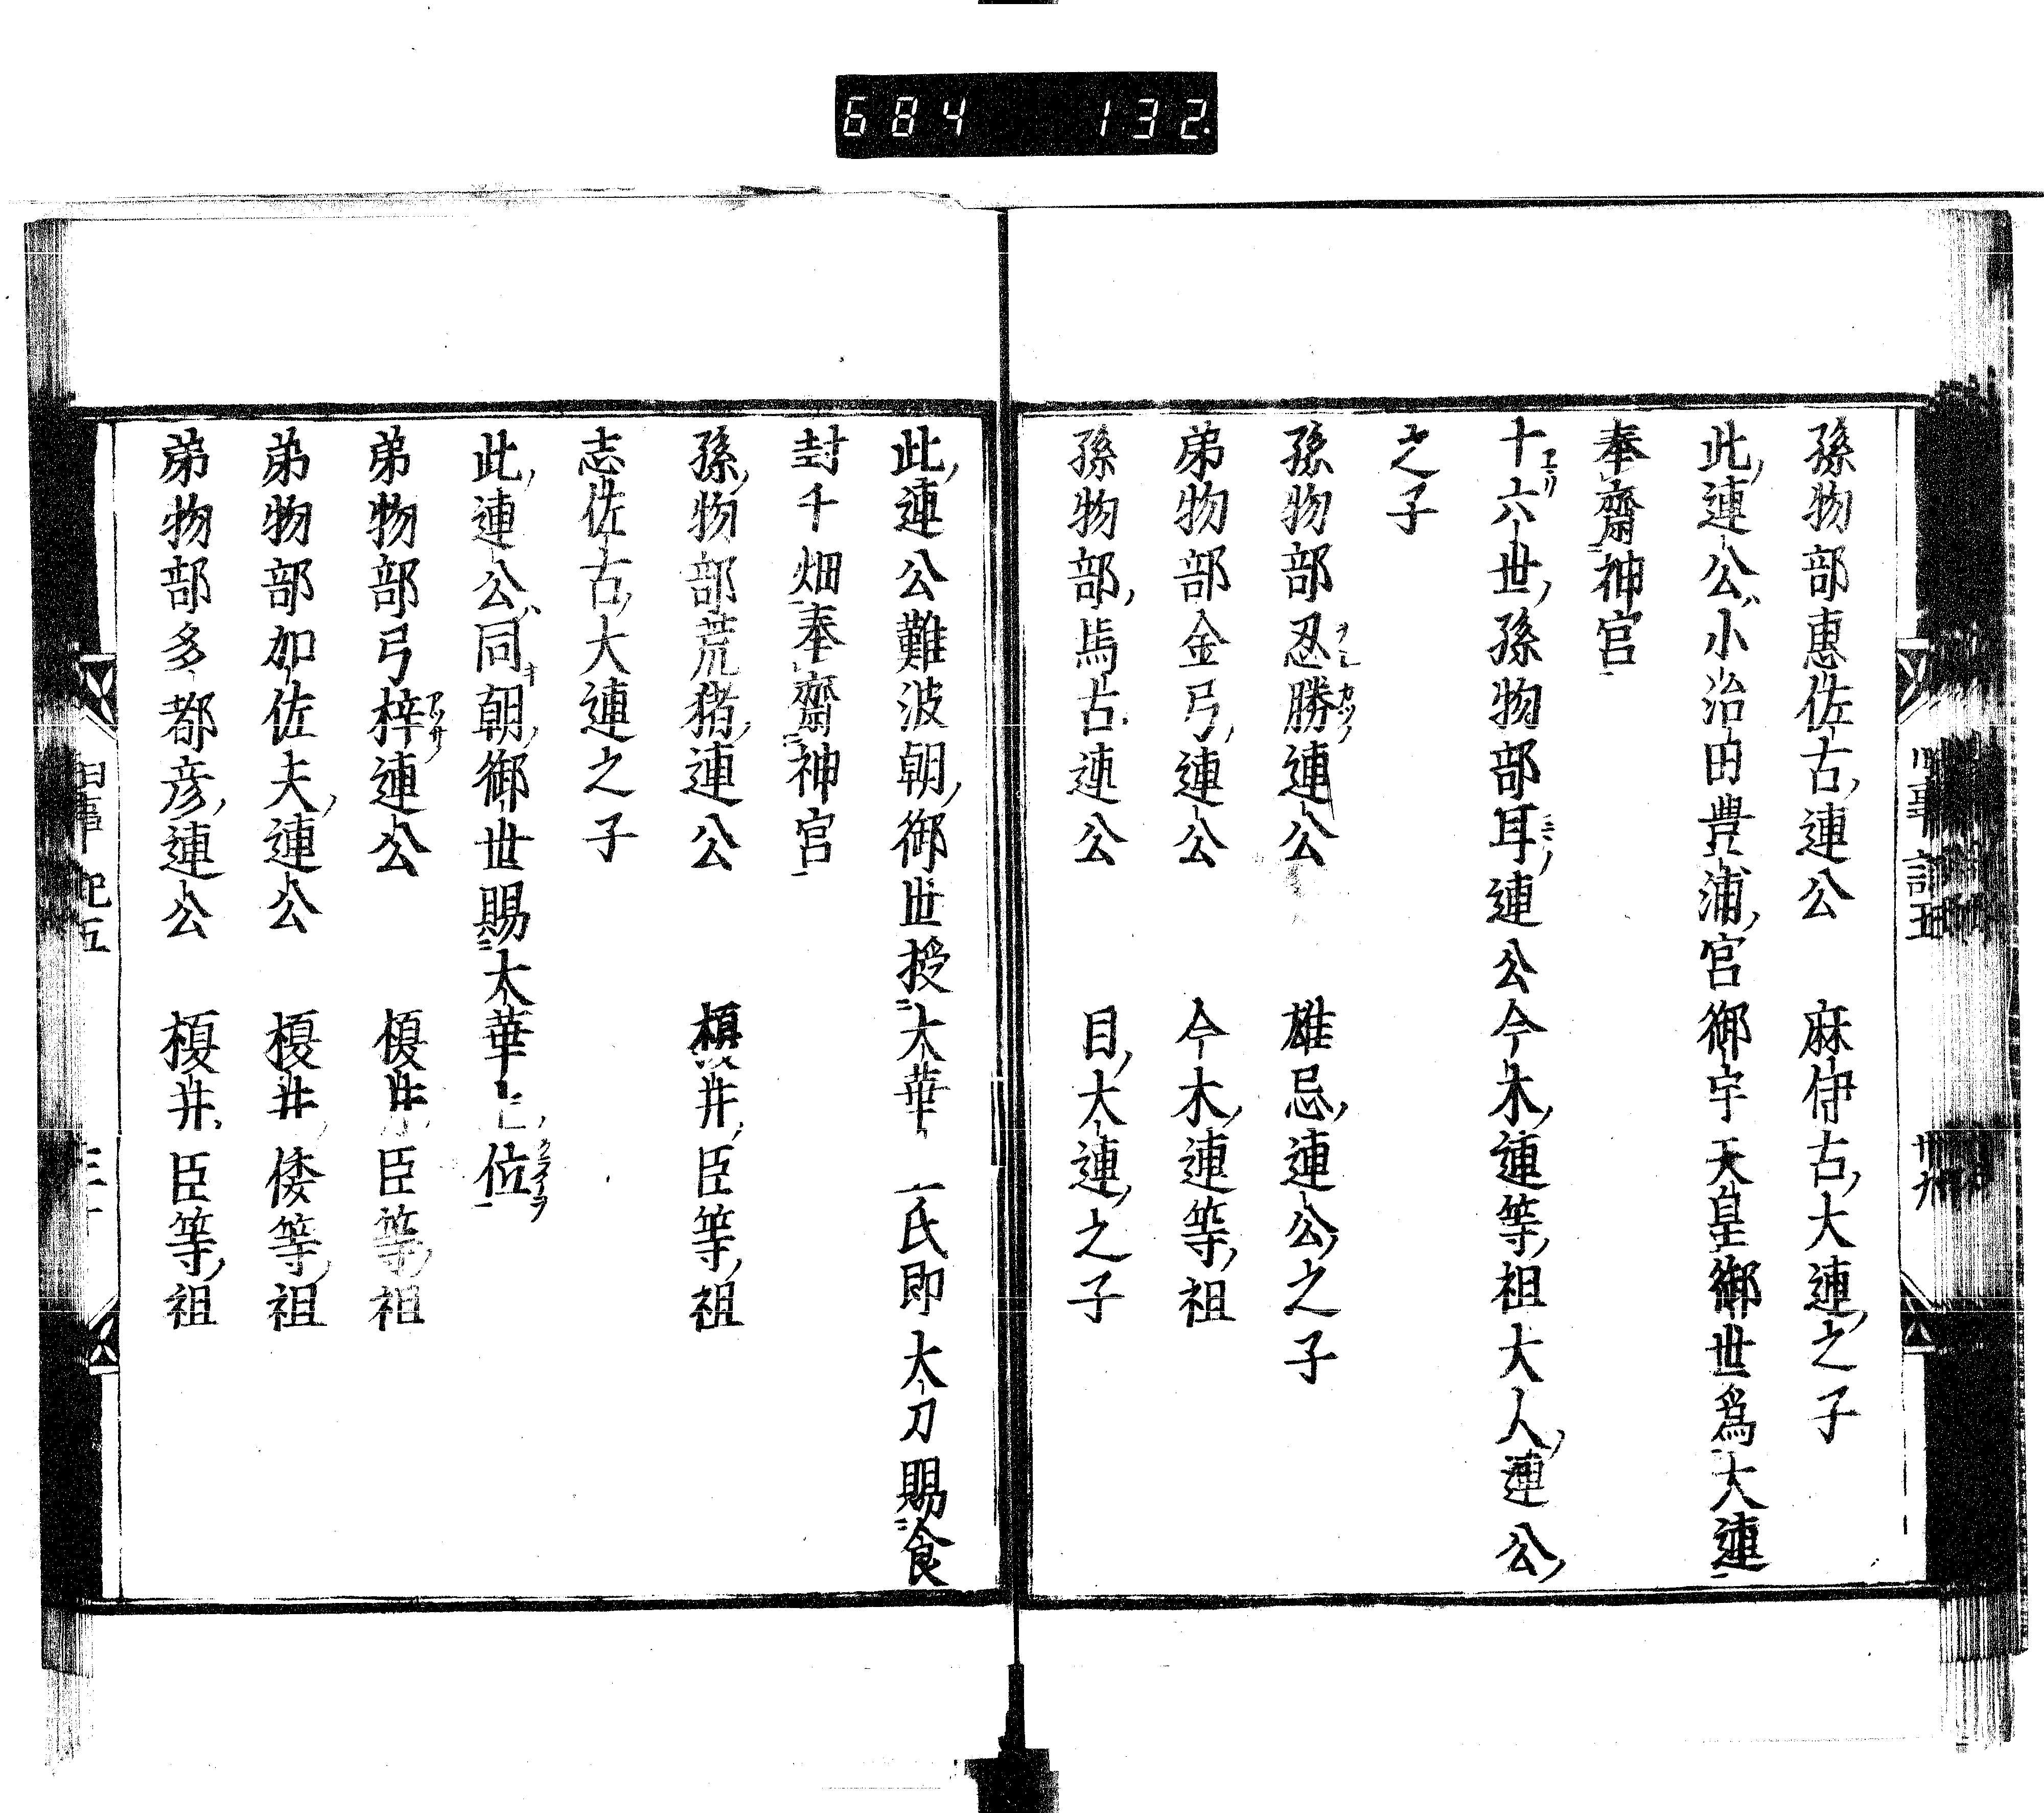 684 132
孫物部惠佐古連公 麻伊古大連之子
此連公小治田豊浦宮御宇天皇御世爲大連
奉齋神宮
十六世孫物部耳連公今木連等祖大人連公
之子
孫物部忍勝連公 雄忌連公之子
弟物部金弓連公 今木連等祖
孫物部馬古連公 目大連之子
此連公難波朝御世授大華 氏即大刀賜食
封千畑奉齋神宮
孫物部荒猪連公 榎井臣等祖
志佐古大連之子
此連公同朝御世賜大華上位
弟物部弓梓連公 榎井臣等祖
弟物部加佐夫連公 榎井倭等祖
弟物部多都彦連公 榎井臣等祖